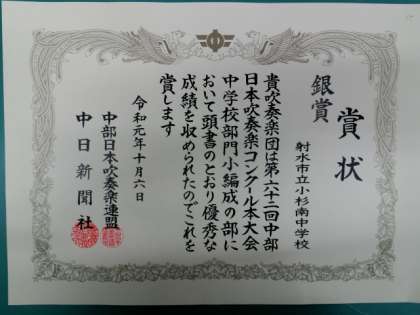 賞状
銀賞
射水市立小杉南中学校
貴吹奏楽団は第六十二回中部
日本吹奏楽コンクール本大会
中学校部門小編成の部に
おいて頭書のとおり優秀な
成績を収められたのでこれを
賞します
令和元年十月六日
中部日本吹奏楽連盟
中日新聞社